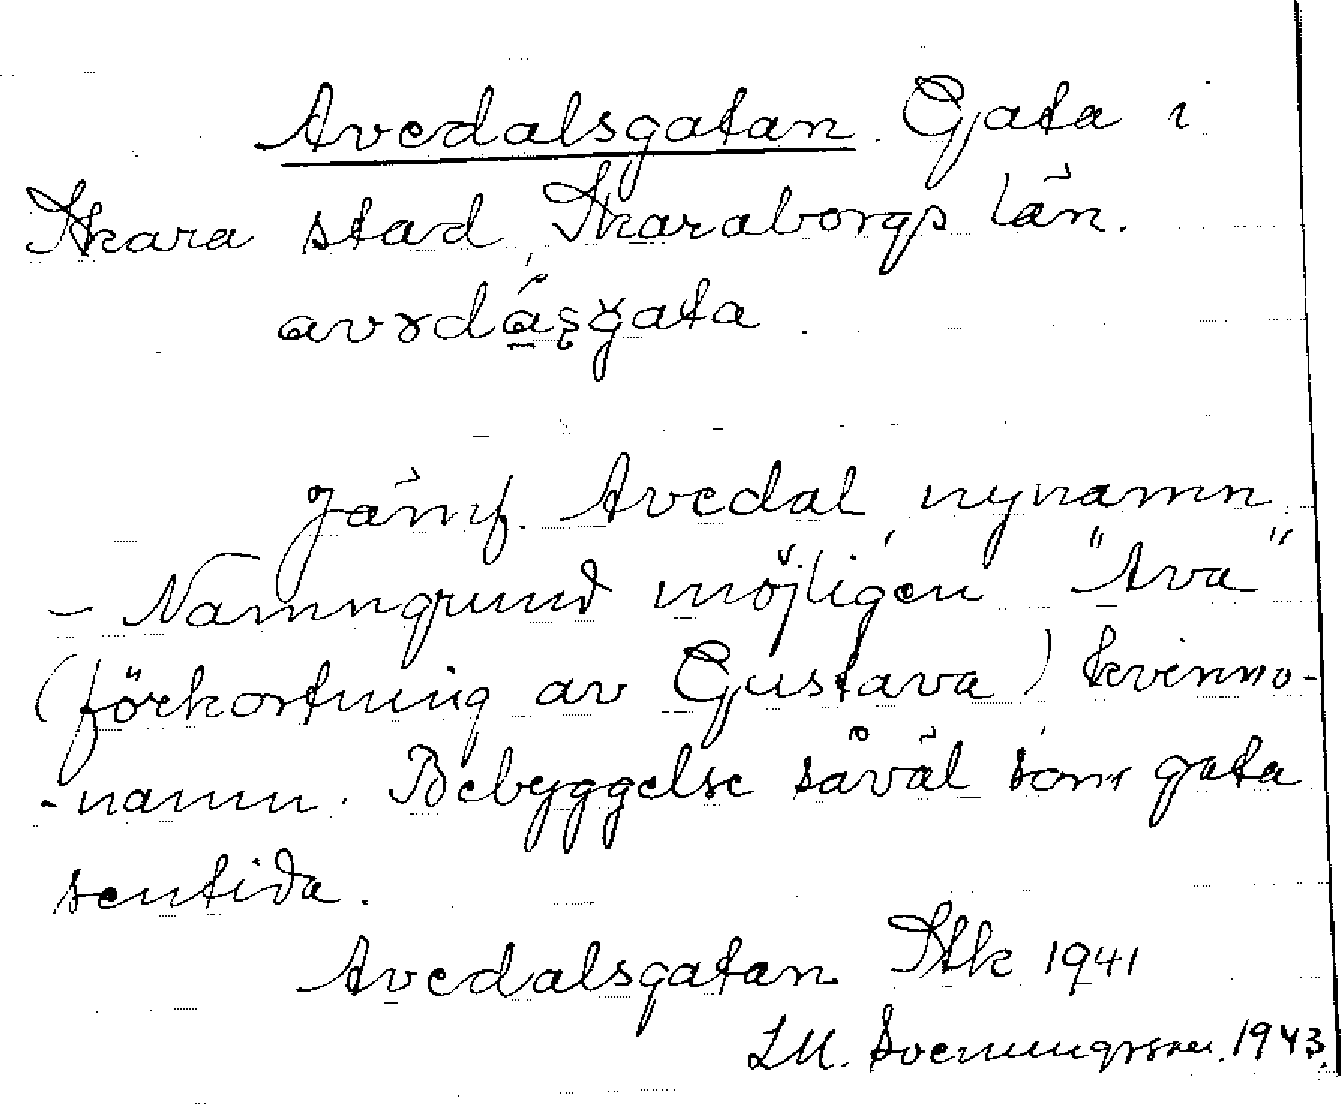 Avedalsgatan. Gata i
Skara stad, Skaraborgs län.
Jämf. Avedal, nynamn.
- Namngrund möjligen "Ava"
(förkortning av Gustava) kvinno-
-namn. Bebyggelse såväl som gata
sentida.
Avedalsgatan Stk 1941
L.M. Svenungsson. 1943.